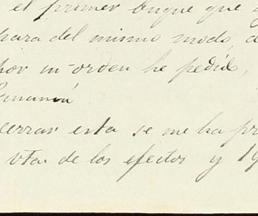 el primer buque que
para del mismo modo, d
por su orden he pedido,
Panamá
cerrar esta se me ha pr
vta. de los efectos y 19